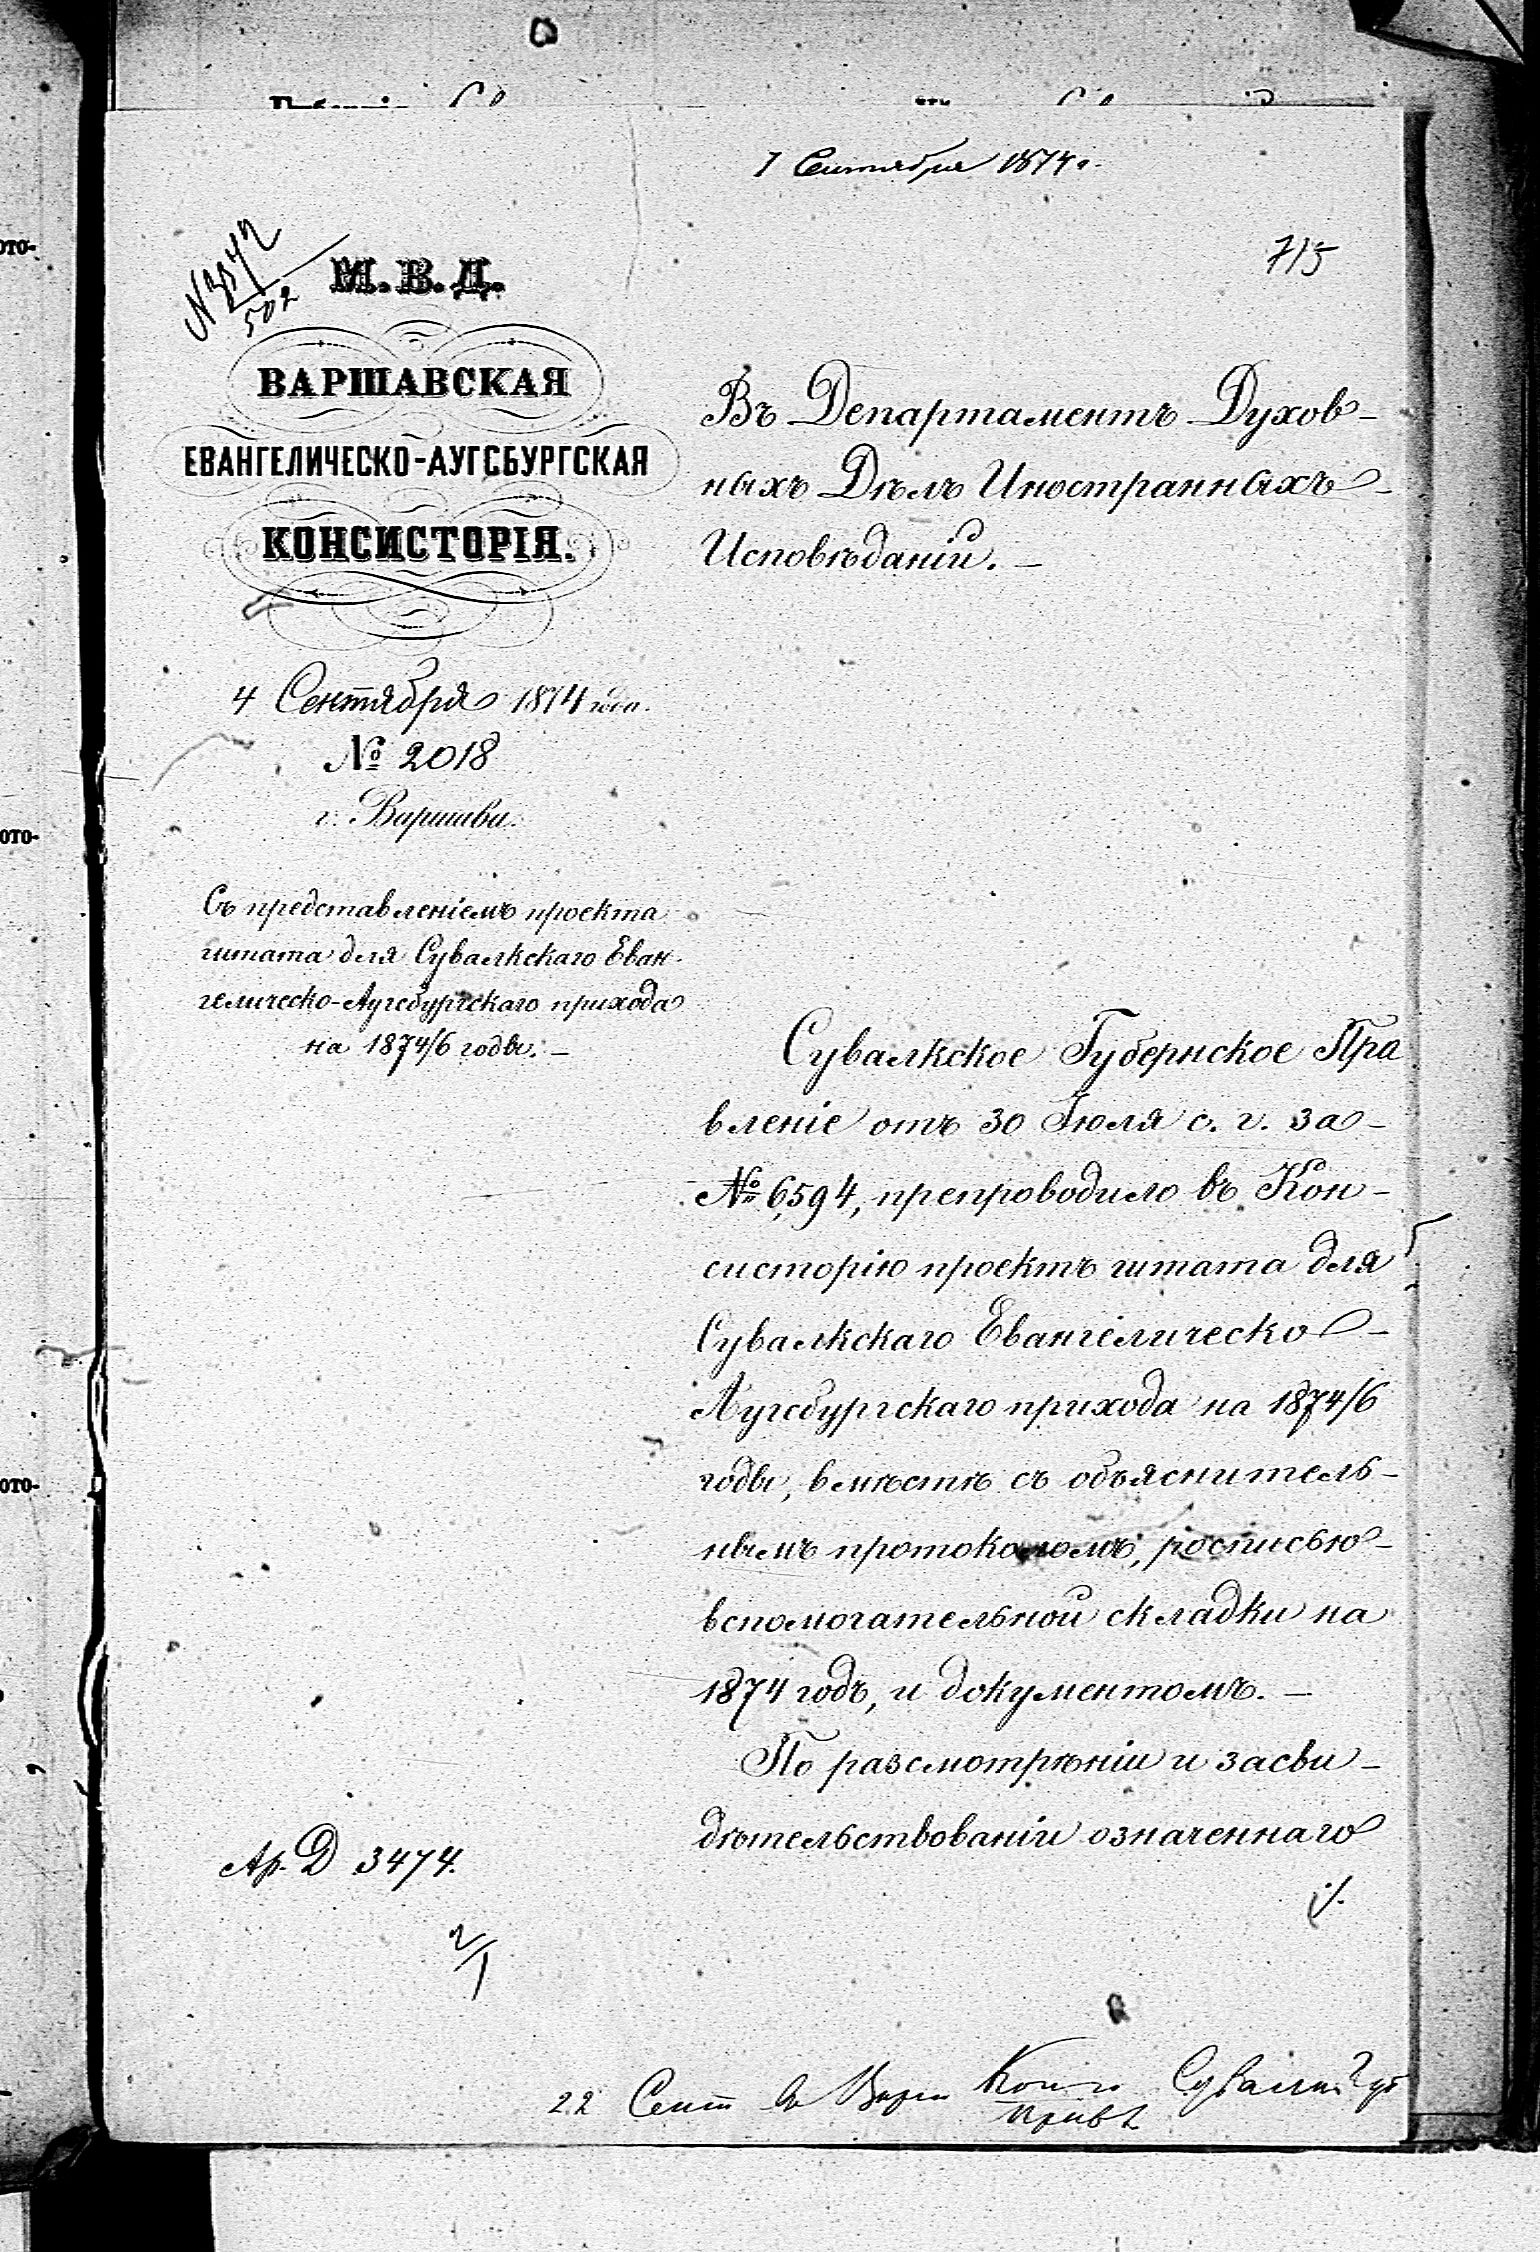 7 Сентября 1874 г.
715
№ 3042
502
М. В. Д.
ВАРШАВСКАЯ
ЕВАНГЕЛИЧЕСКО-АУГСБУРГСКАЯ
КОНСИСТОРІЯ.
4 Сентября 1874 года.
№ 2018
г. Варшава.
Съ представленіемъ проекта
штата для Сувалкскаго Еван-
гелическо-Аугсбургскаго прихода
на 1874/6 годы. –
Въ Департаментъ Духов-
ныхъ Дѣлъ Иностранныхъ
Исповѣданій. –
Сувалкское Губернское Пра
вленіе отъ 30 Іюля с. г. за-
№ 6594, препроводило въ Кон-
систорію проектъ штата для
Сувалкскаго Евангелическо-
Аугсбургскаго прихода на 1874/6
годы, вмѣстѣ съ объяснитель-
нымъ протоколомъ, росписью-
вспомогательной складки на
1874 годъ, и документомъ. –
По разсмотрѣніи и засви-
дѣтельствованіи означеннаго
./.
Ар. Д 3474.
2/1
22 Сент